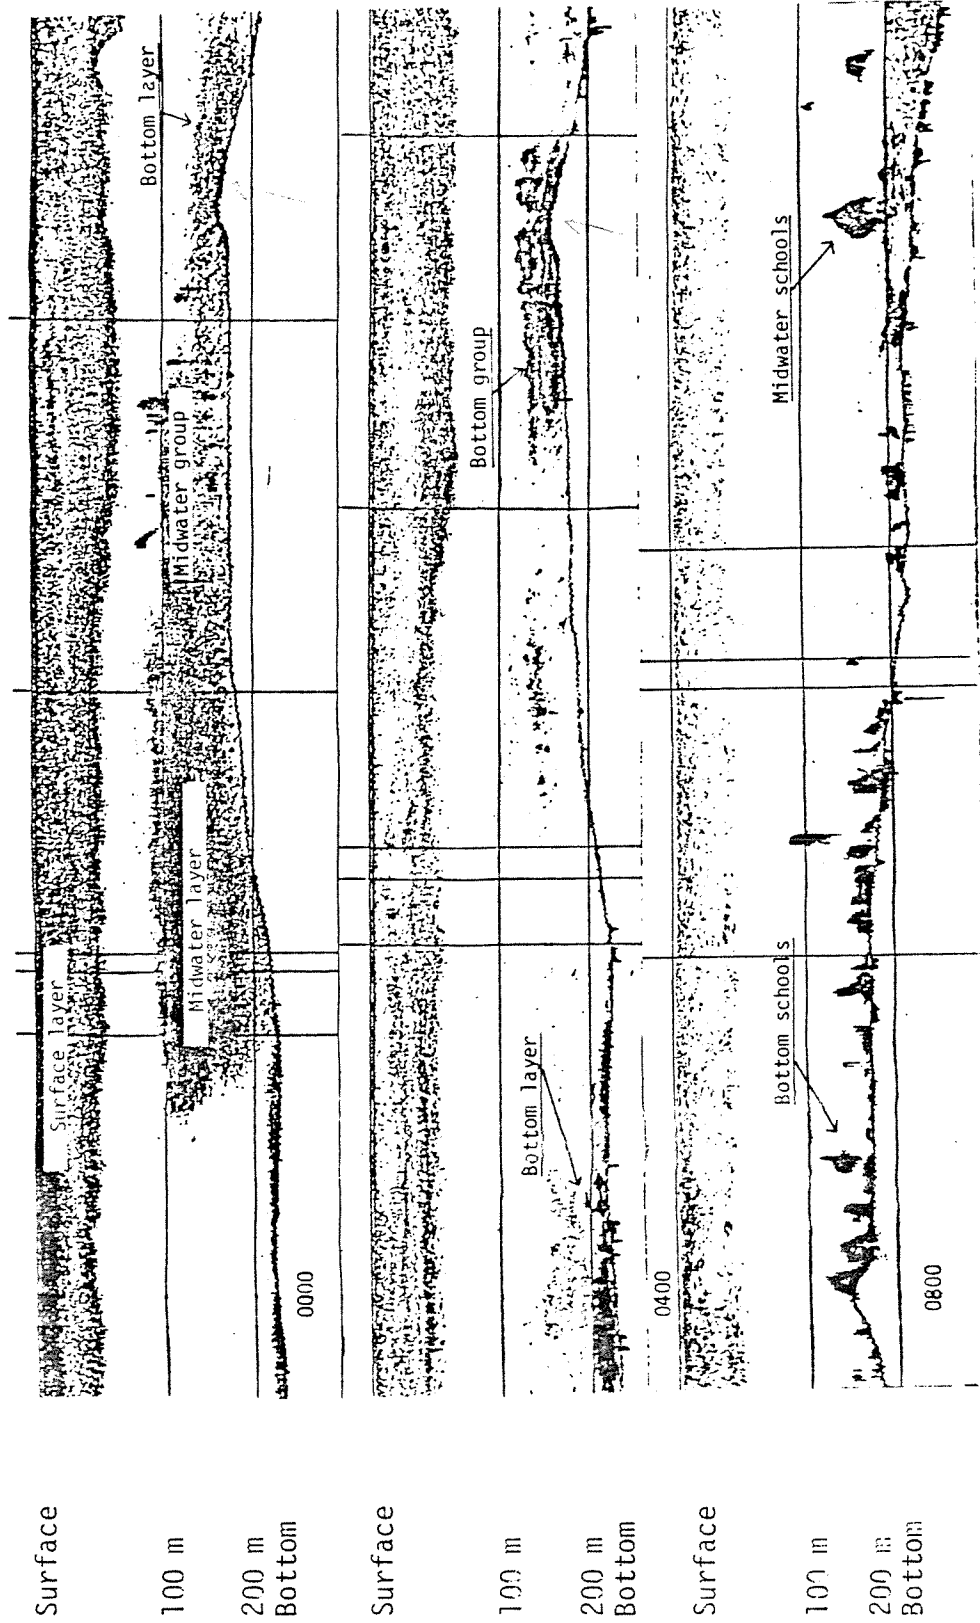 Surface
100 m
200 m
Bottom
Surface layer
Midwater layer
Midwater group
Bottom layer
0000
Surface
100 m
200 m
Bottom
Bottom layer
Bottom group
0400
Surface
100 m
200 m
Bottom
Bottom schools
Midwater schools
0800